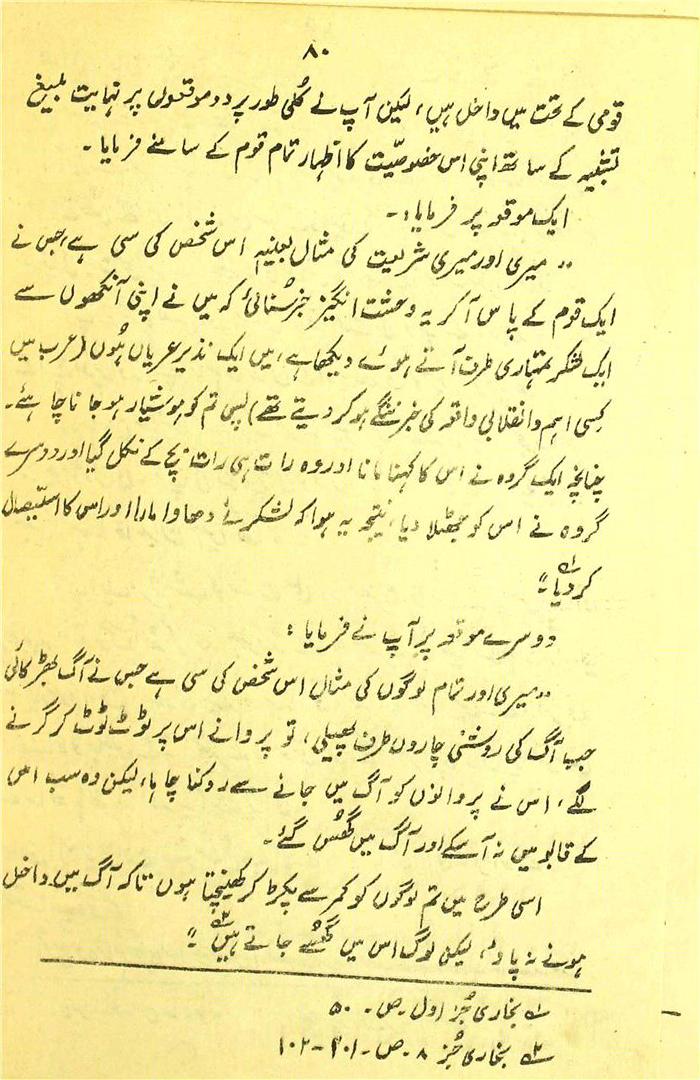 ۸۰
قومی کے تحت میں داخل ہیں، لیکن آپ نے کُلی طور پر دو موقعوں پر نہایت بلیغ
تشبیہ کے ساتھ اپنی اس خصوصیّت کا اظہار تمام قوم کے سامنے فرمایا۔
ایک موقع پر فرمایا:۔
"میری اور میری شریعت کی مثال بعینہٖ اس شخص کی سی ہے، جس نے
ایک قوم کے پاس آکر یہ وحشت انگیز خبر سُنائی کہ میں نے اپنی آنکھوں سے
ایک لشکر تمہاری طرف آتے ہوئے دیکھا ہے، میں ایک نذیر عریاں ہُوں (عرب میں
کِسی اہم و انقلابی واقعہ کی خبر ننگے ہو کر دیتے تھے) پس تم کو ہوشیار ہو جانا چاہئے۔
چنانچہ ایک گروہ نے اس کا کہنا مانا اور وہ رات ہی رات بچ کے نکل گیا اور دوسرے
گروہ نے اس کو جھٹلا دیا، نتیجہ یہ ہوا کہ لشکر نے دھاوا مارا اور اس کا استیصال
کر دیا۔" ؎۱
دوسرے موقع پر آپ نے فرمایا:
"میری اور تمام لوگوں کی مثال اس شخص کی سی ہے جس نے آگ بھڑکائی
جب آگ کی روشنی چاروں طرف پھیلی، تو پروانے اس پر ٹوٹ ٹوٹ کر گرنے
لگے، اس نے پروانوں کو آگ میں جانے سے روکنا چاہا، لیکن وہ سب اس
کے قابو میں نہ آسکے اور آگ میں گُھس گئے۔
اسی طرح میں تم لوگوں کو کمر سے پکڑ کر کھینچتا ہوں تاکہ آگ میں داخل
ہونے نہ پاؤ، لیکن لوگ اس میں گُھسے جاتے ہیں۔" ؎۲
؎۱ بخاری جُز اول۔ص۔ ۵۰
؎۲ بخاری جُز ۸۔ص۔۱۰۲-۱۰۱